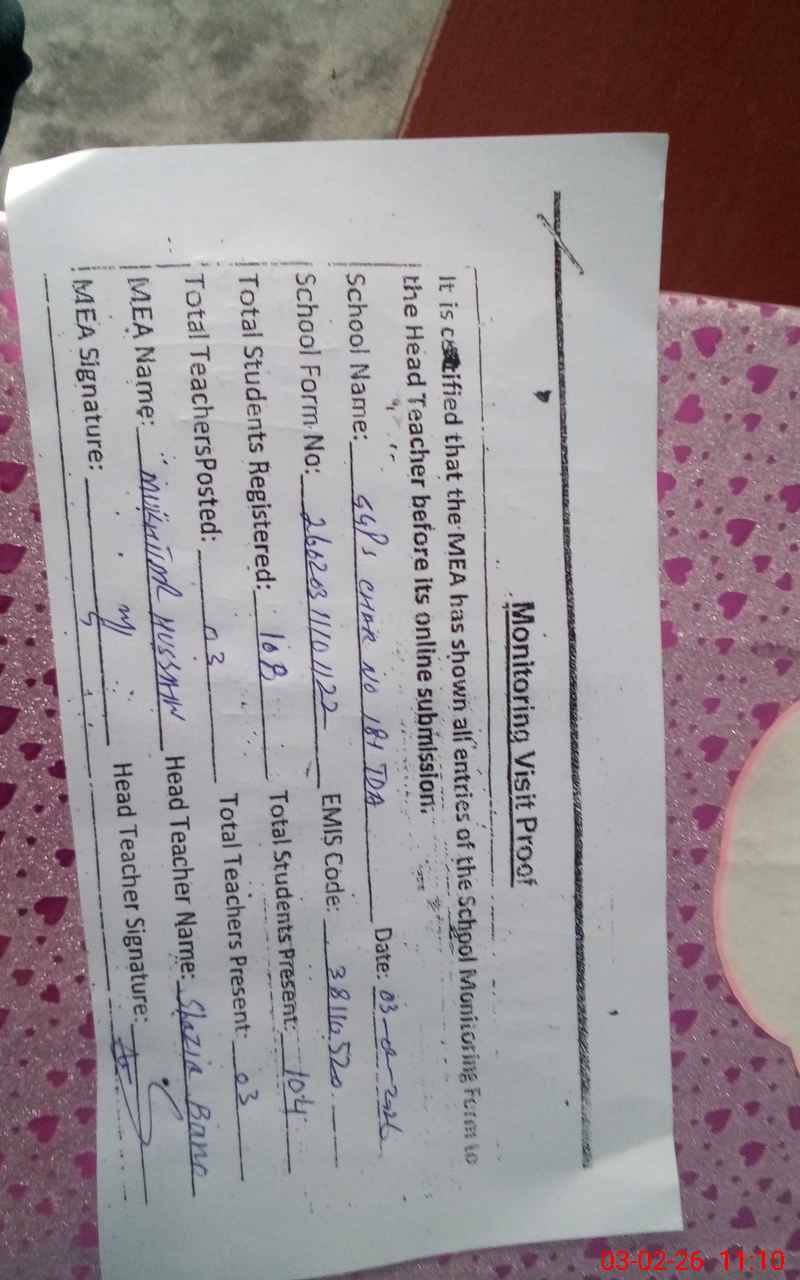 Monitoring Visit Proof
It is certified that the MEA has shown all entries of the School Monitoring Form to
the Head Teacher before its online submission.
School Name: GGPS CHAK NO 181 TDA Date: 03-02-2026
School Form No: EMIS Code: 38110520
Total Students Registered: 108 Total Students Present: 104
Total TeachersPosted: 03 Total Teachers Present: 03
MEA Name: HUSSAIN Head Teacher Name: Shazia Bano
MEA Signature: Head Teacher Signature:
03-02-26 11:10